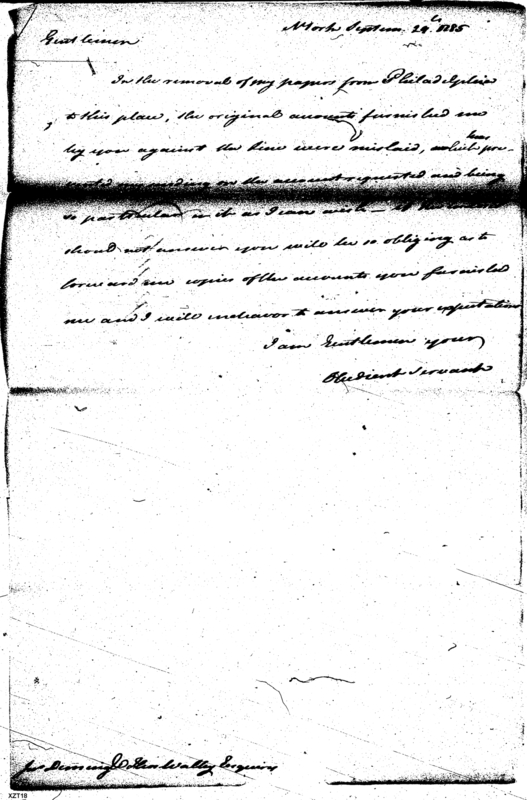 N York Septem. 29th 1785
Gentlemen
In the removal of my papers from Philadelphia
to this place, the original accounts furnished me
by you against the line were mislaid, which has pre-
vented my sending on the account requested and being
so particular in it as I can wish — if the
should not answer you will be so obliging as to
forward me copies of the accounts you furnished
me and I will endeavor to answer your expectation
I am Gentlemen your
Obedient Servant
Walley Esquires
XZT18